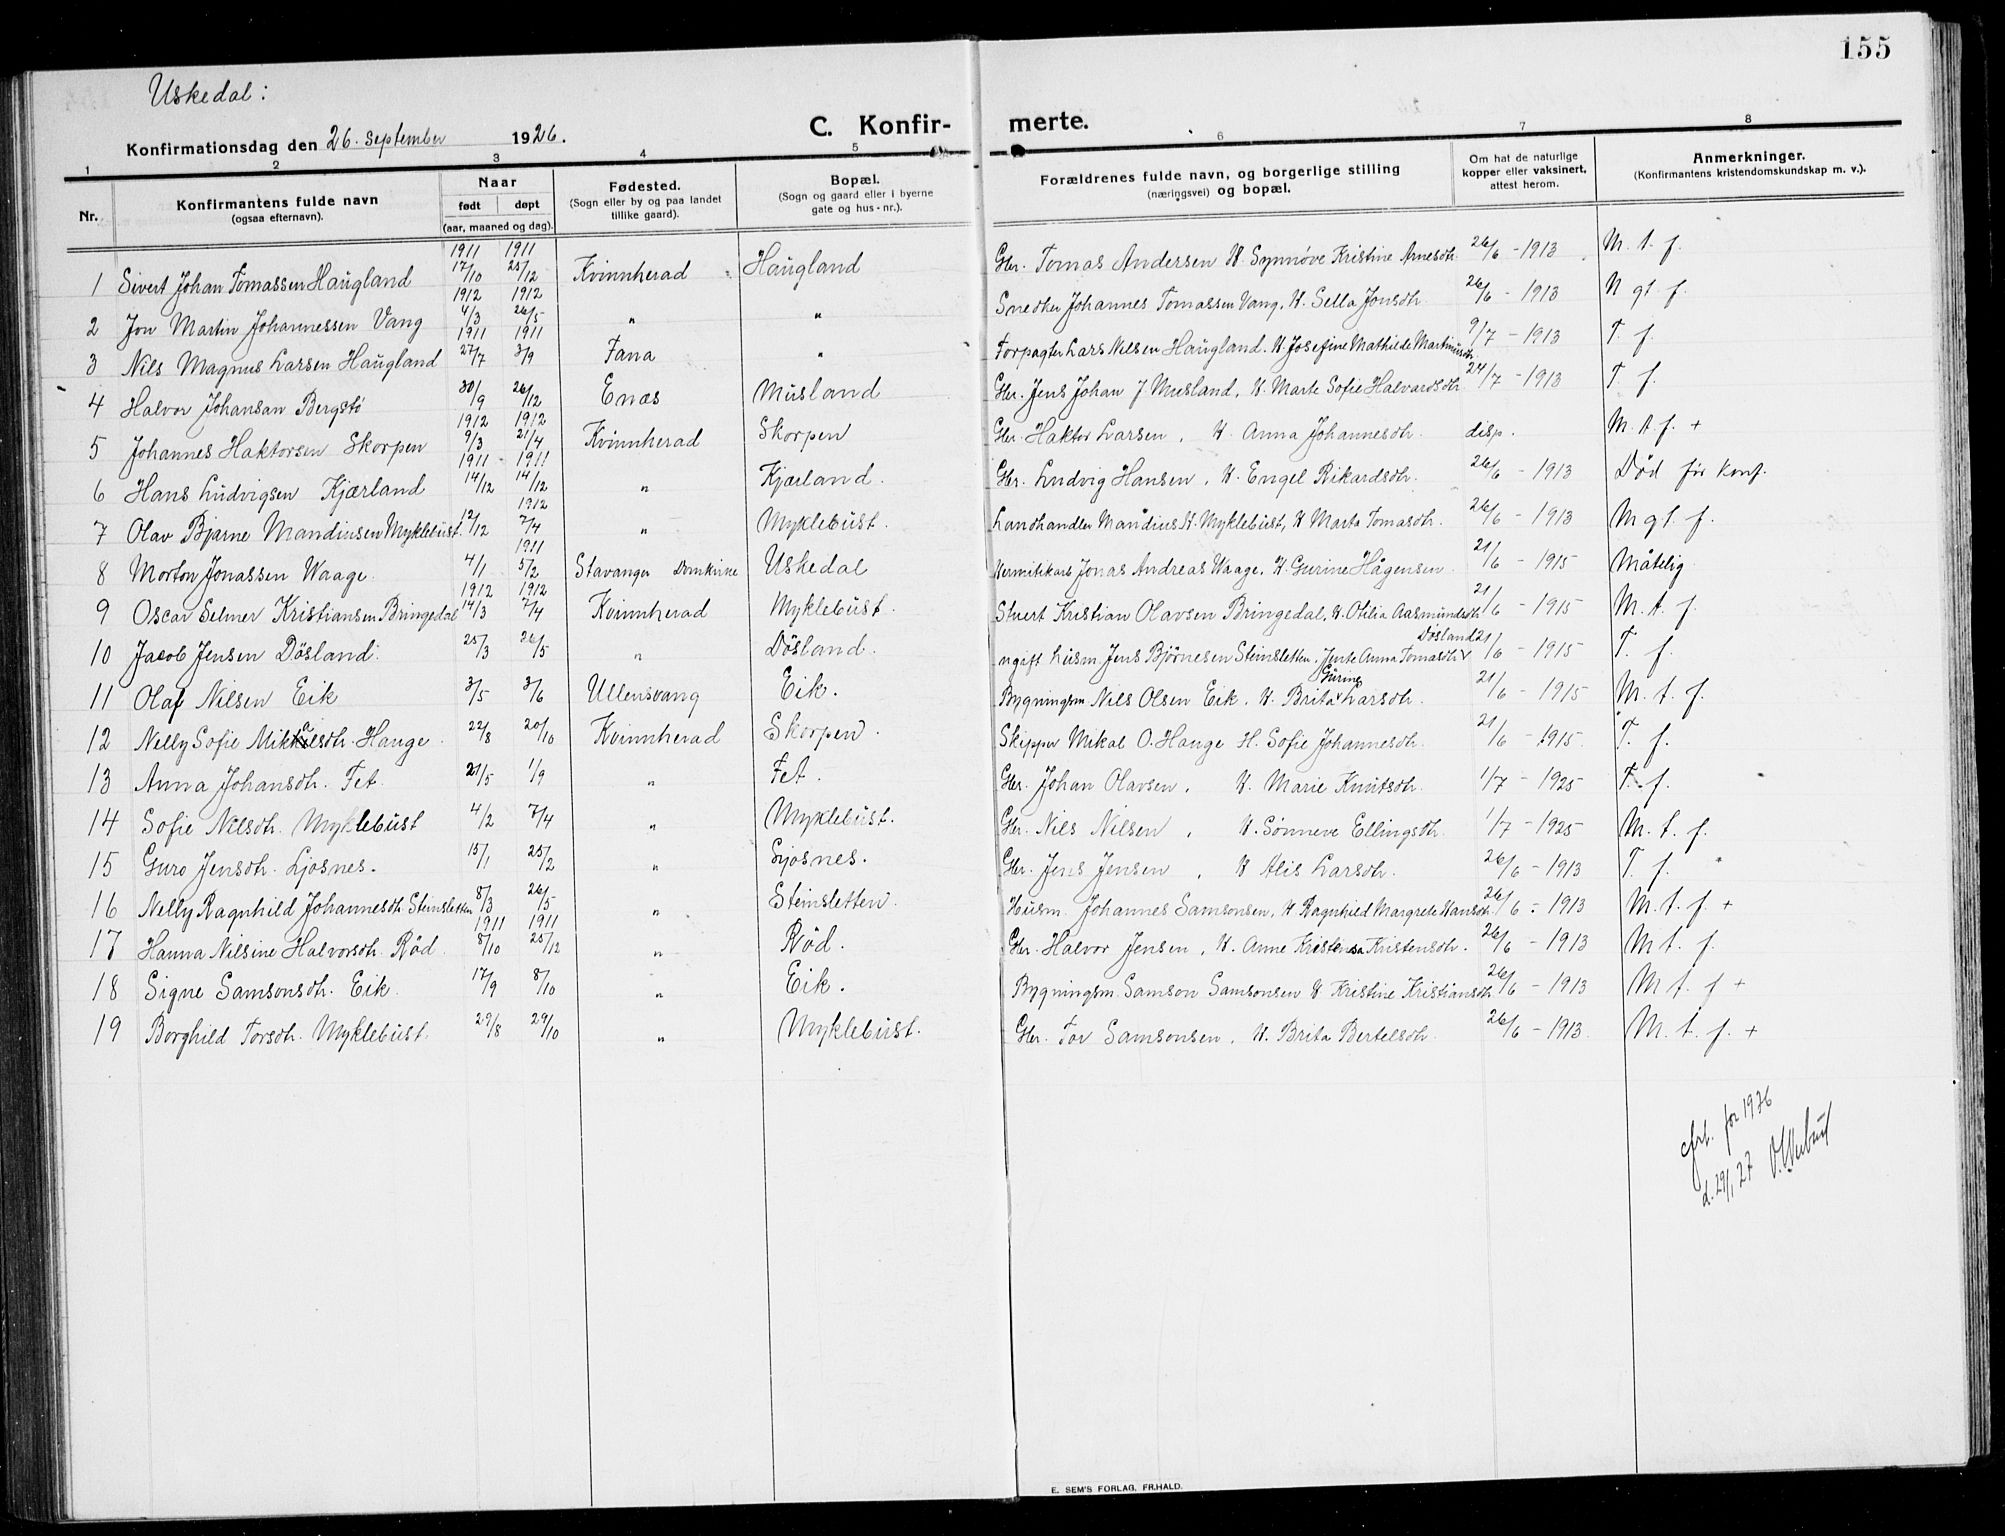 155
Uskedal:
C. Konfirmerte.
Konfirmationsdag den 26. september 1926.
1 2 3 4 5 6 7 8
Nr. Konfirmantens fulde navn (ogsaa efternavn). Naar født døpt (aar, maaned og dag). Fødested. (Sogn eller by og paa landet tillike gaard). Bopæl. (Sogn og gaard eller i byerne gate og hus-nr.). Forældrenes fulde navn, og borgerlige stilling (næringsvei) og bopæl. Om hat de naturlige kopper eller vaksinert, attest herom. Anmerkninger. (Konfirmantens kristendomskundskap m. v.).
1 Sivert Johan Tomassen Haugland 1911 17/10 1911 25/12 Kvinnherad Haugland Gbr. Tomas Andersen H. Synnøve Kristine Arnesdtr. 26/6 - 1913 M. t. f.
2 Jon Martin Johannessen Vang 1912 4/3 1912 26/5 " " Snedker Johannes Tomassen Vang, H. Sella Jonsdtr. 26/6 - 1913 N gt f.
3 Nils Magnus Larsen Haugland 1911 27/7 1911 3/9 Fana " Forpagter Lars Nilsen Haugland. H. Josefine Mathilde Martinusdtr 9/7 - 1913 T. f.
4 Halvor Johansan Bergstø 30/9 26/12 Enæs Musland Gbr. Jens Johan J. Musland, H. Marte Sofie Halvardsdtr 24/7 - 1913 T. f.
5 Johannes Haktorsen Skorpen 1912 9/3 1912 21/4 Kvinnherad Skorpen Gbr. Haktor Larsen, H. Anna Johannesdtr. disp. M. t. f. +
6 Hans Ludvigsen Kjærland 1911 14/12 1911 14/12 " Kjærland. Gbr. Ludvig Hansen, H. Engel Rikardsdtr. 26/6 - 1913 Død før konf.
7 Olav Bjarne Mandiusen Myklebust. 12/12 1912 7/4 " Myklebust. Landhandler Mandius H. Myklebust, H. Marta Tomasdtr. 26/6 - 1913 M gt. f.
8 Morton Jonassen Waage. 4/1 1911 5/2 Stavanger Domkirke Uskedal Hermitikarb Jonas Andreas Waage, H. Gurine Hågensen 21/6 - 1915 Måtelig
9 Oscar Selmer Kristiansen Bringedal 1912 14/3 1912 7/4 Kvinnherad Myklebust. Stuert Kristian Olavsen Bringedal, H. Otilia Aasmundsdtr 21/6 - 1915 M. t. f.
10 Jacob Jensen Døsland. 25/3 26/5 " Døsland. ugift husm Jens Bjørnesen Steinsletten, Jente Anna Tomasdtr Døsland 21/6 - 1915 T. f.
11 Olaf Nilsen Eik 3/5 3/6 Ullensvang Eik. Bygningsm Nils Olsen Eik, H. Brita Gurine Larsdtr. 21/6 - 1915 M. t. f.
12 Nelly Sofie Mikalsdtr. Hauge. 22/8 20/10 Kvinnherad Skorpen. Skipper Mikal O. Hauge H. Sofie Johannesdtr. 21/6 - 1915 T. f.
13 Anna Johansdtr. Fet. 21/5 1/9 " Fet. Gbr. Johan Olavsen, H. Marie Knutsdtr. 1/7 - 1925 T. f.
14 Sofie Nilsdtr. Myklebust 4/2 7/4 " Myklebust. Gbr. Nils Nilsen, H. Sønneve Ellingsdtr. 1/7 - 1925 M. t. f.
15 Guro Jensdtr. Ljosnes. 15/1 25/2 " Ljosnes. Gbr. Jens Jensen, H Alis Larsdtr. 26/6 - 1913 T. f.
16 Nelly Ragnhild Johannesdtr. Steinsletten 8/3 26/5 " Steinsletten. Husm. Johannes Samsonsen, H Ragnhild Margrete Hansdtr 26/6 - 1913 M. t. f. +
17 Hanna Nilsine Halvorsdtr. Rød. 1911 8/10 1911 25/12 " Rød. Gbr. Halvor Jensen, H. Anne Kristensa Kristensdtr. 26/6 - 1913 M t. f.
18 Signe Samsonsdtr. Eik. 17/9 8/10 " Eik. Bygningsm. Samson Samsonsen H Kristine Kristiansdtr. 26/6 - 1913 M t. f +
19 Borghild Torsdtr. Myklebust. 29/8 29/10 " Myklebust. Gbr. Tor Samsonsen, H. Brita Bertelsdtr. 26/6 - 1913. M. t. f. +
for 1926
d. 29/1 27
E. SEM'S FORLAG, FR.HALD.